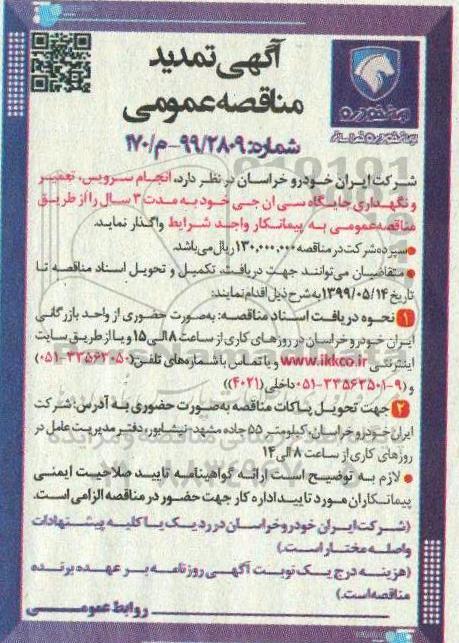 آگهی تمدید
مناقصه عمومی
شماره: ۹۹/۲۸۰۹-م/۱۷۰
ایران خودرو خراسان
شرکت ایران خودرو خراسان در نظر دارد، انجام سرویس، تعمیر
و نگهداری جایگاه سی ان جی خود به مدت ۳ سال را از طریق
مناقصه عمومی به پیمانکار واجد شرایط واگذار نماید.
●سپرده شرکت در مناقصه ۱۳۰,۰۰۰,۰۰۰ ریال می باشد.
● متقاضیان می توانند جهت دریافت، تکمیل و تحویل اسناد مناقصه تا
تاریخ ۱۳۹۹/۰۵/۱۴ به شرح ذیل اقدام نمایند:
۱ نحوه دریافت اسناد مناقصه: به صورت حضوری از واحد بازرگانی
ایران خودرو خراسان در روزهای کاری از ساعت ۸ الی ۱۵ و یا از طریق سایت
اینترنتی www.ikkco.ir و یا تماس با شماره های تلفن (۳۳۵۶۳۰۵۰-۰۵۱)
و (۹-۳۳۵۶۳۵۰۱-۰۵۱ داخلی (۴۰۲۱))
۲ جهت تحویل پاکات مناقصه به صورت حضوری به آدرس: شرکت
ایران خودرو خراسان، کیلومتر ۵۵ جاده مشهد- نیشابور، دفتر مدیریت عامل در
روزهای کاری از ساعت ۸ الی ۱۴
● لازم به توضیح است ارائه گواهینامه تایید صلاحیت ایمنی
پیمانکاران مورد تایید اداره کار جهت حضور در مناقصه الزامی است.
(شرکت ایران خودرو خراسان در رد یک یا کلیه پیشنهادات
واصله مختار است.)
(هزینه درج یک نوبت آگهی روزنامه بر عهده برنده
مناقصه است.)
روابط عمومی